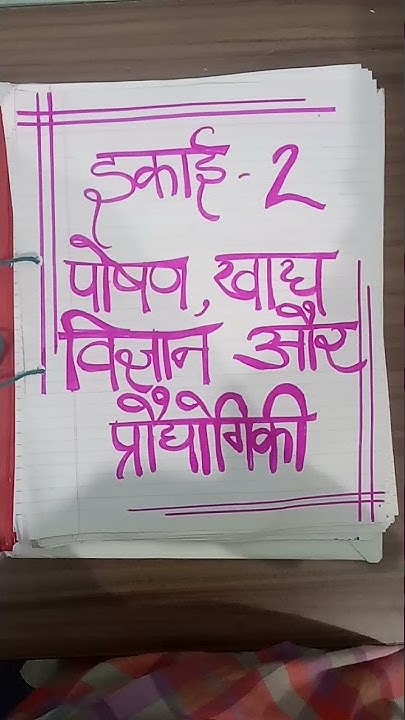 इकाई - 2
पोषण, खाद्य
विज्ञान और
प्रौद्योगिकी